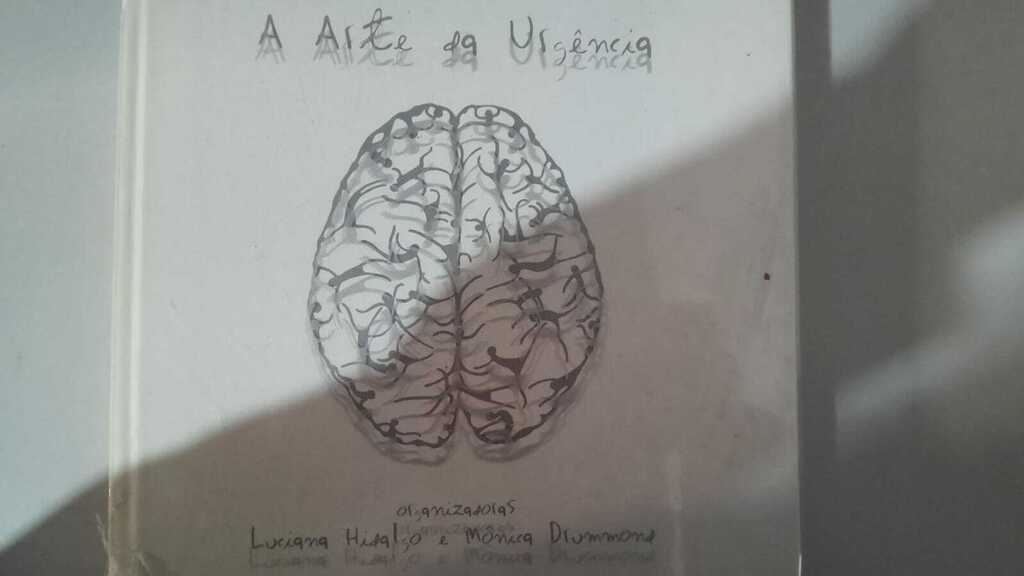 A Arte da Urgência
organizadoras
Luciana Hidalgo e Mônica Drummond